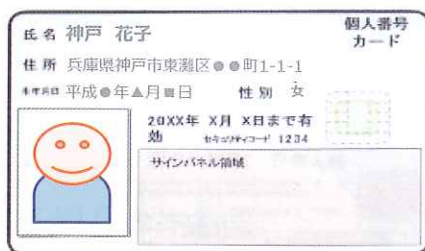 氏名 神戸 花子
個人番号
カード
住所 兵庫県神戸市東灘区●●町1-1-1
生年月日 平成●年▲月■日 性別 女
20XX年 X月 X日まで有
効 セキュリティコード 1234
サインパネル領域